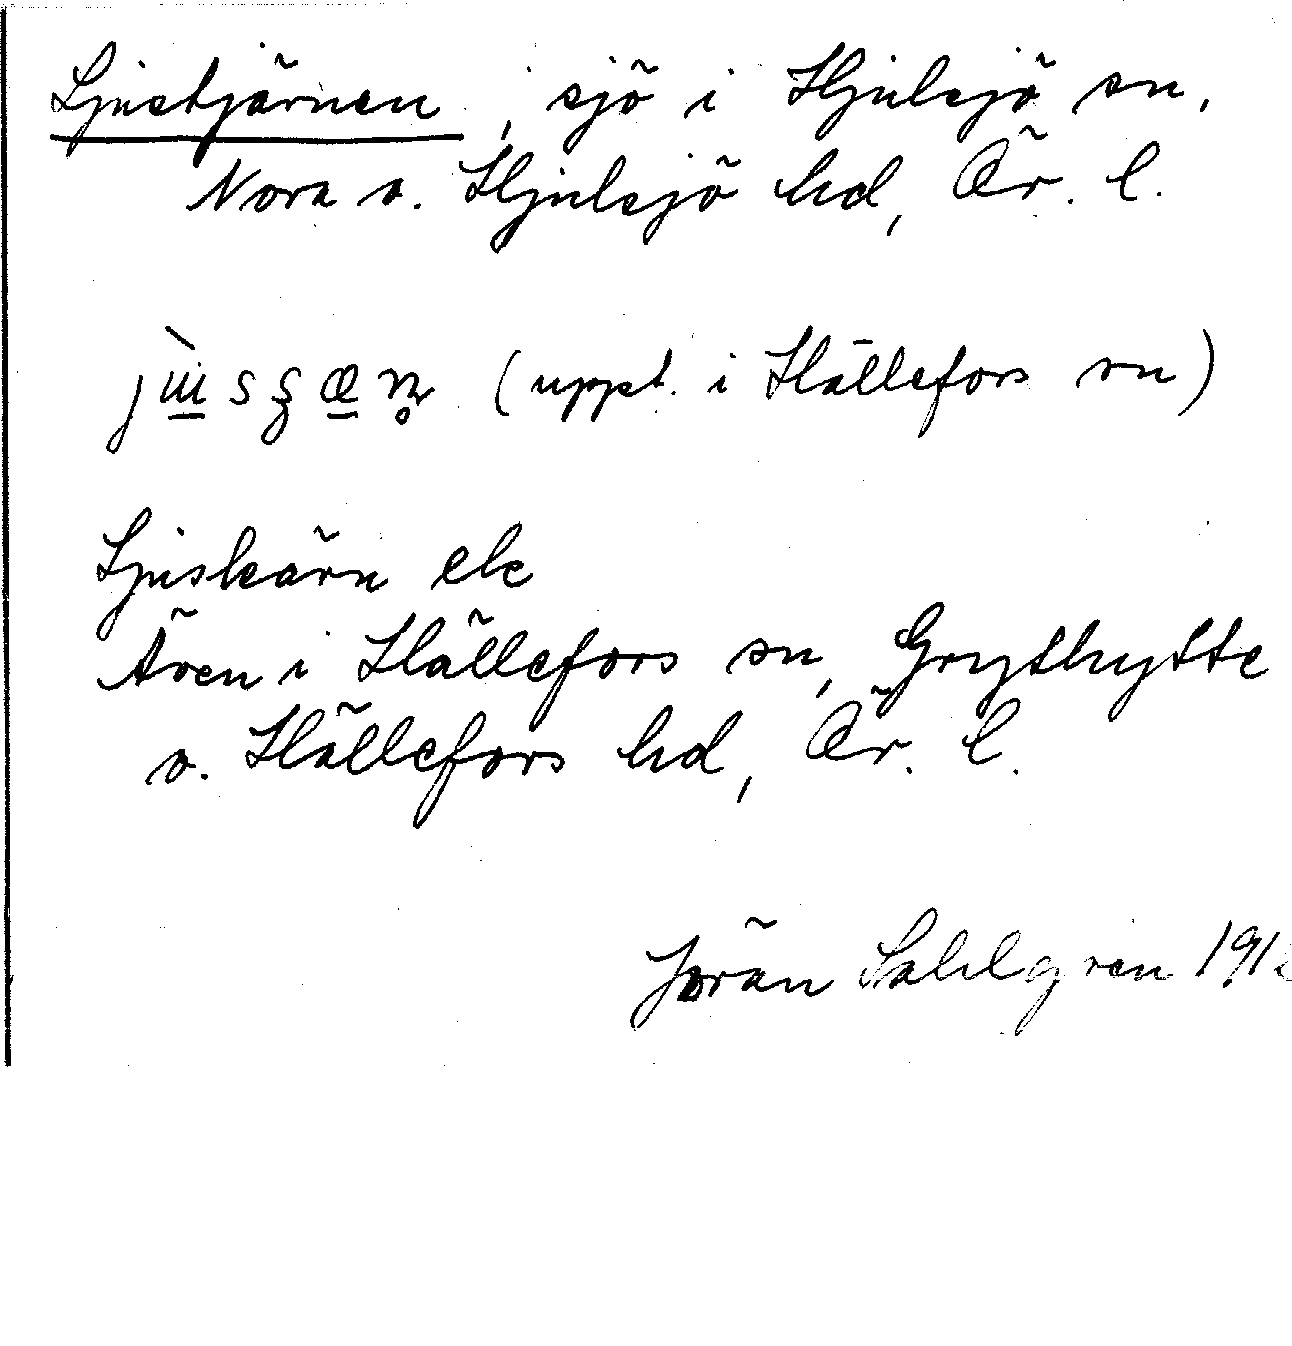 Ljustjärnen, sjö i Hjulsjö sn,
Nora o. Hjulsjö hd, Ör. l.
(uppt. i Hällefors sn)
Ljuskärn ek
Även i Hällefors sn, Grythytte
o. Hällefors hd, Ör. l.
Jöran Sahlgren